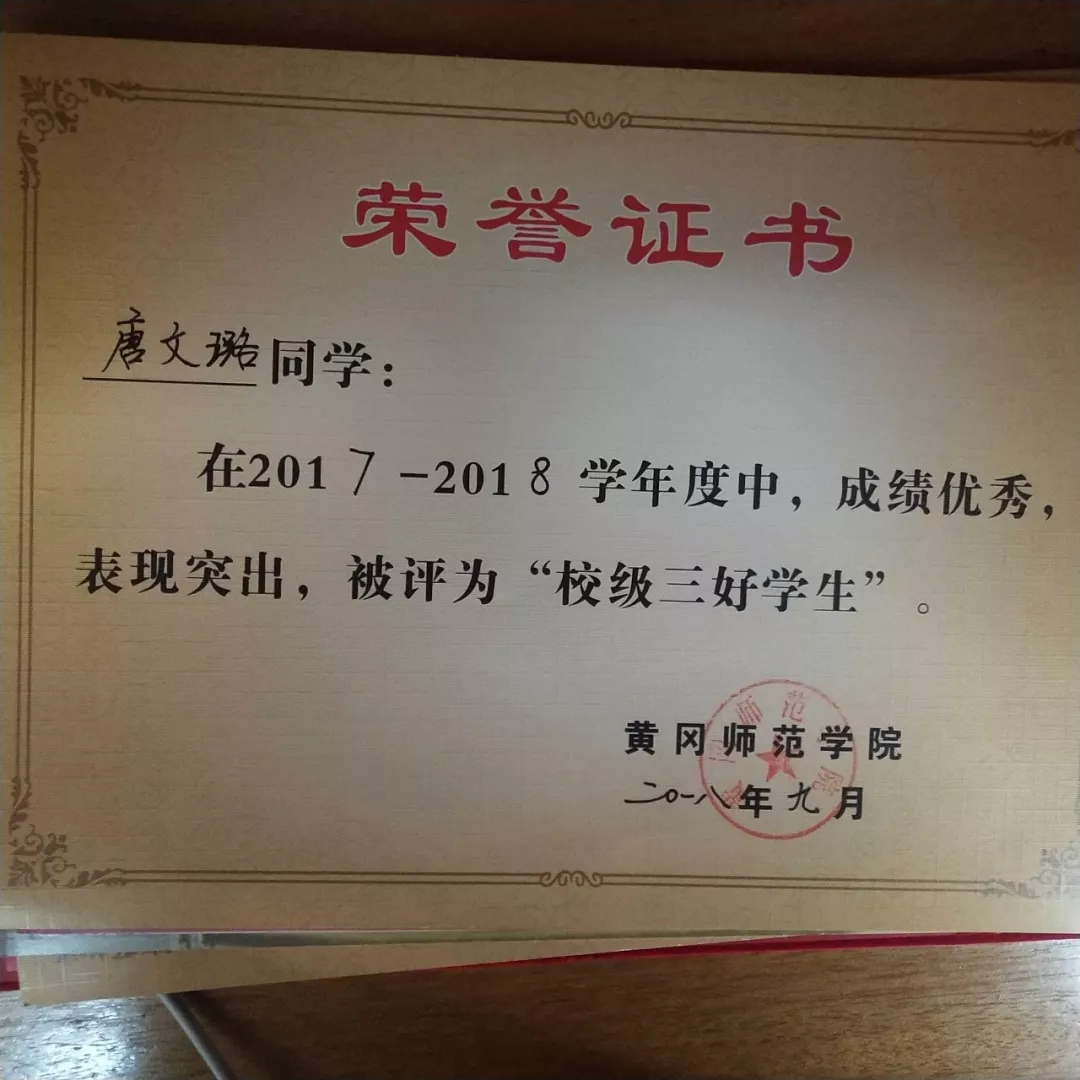 荣誉证书
唐文璐同学：
在2017-2018学年度中，成绩优秀，
表现突出，被评为“校级三好学生”。
黄冈师范学院
二〇一八年九月
黄冈师范学院